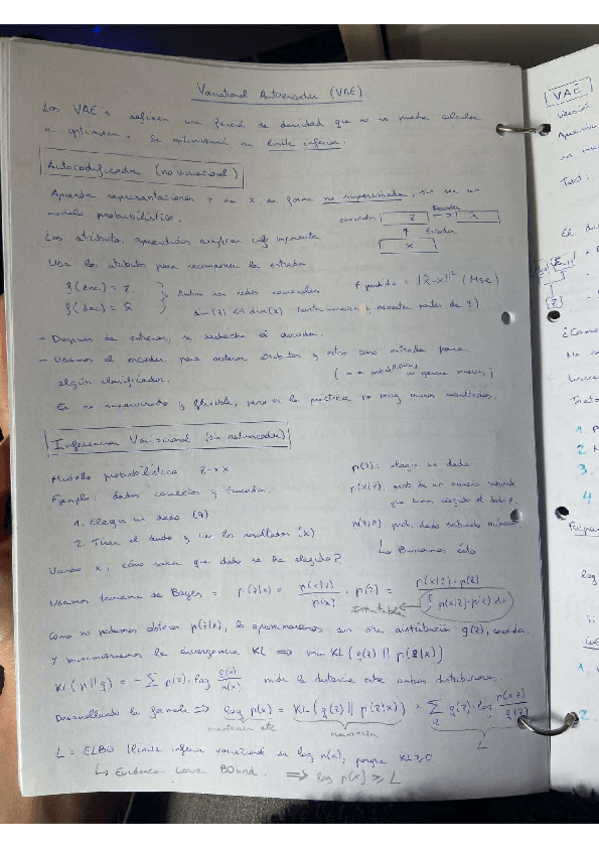 Variational Autoencoder (VAE)
Los VAE's definen una función de densidad que no se puede calcular
ni optimizar. Se optimizará su límite inferior.
Autocodificador (no variacional)
Aprende representaciones z de x, de forma no supervisada, sin ser un
modelo probabilístico.
z
x
Encoder
x
Los atributos aprendidos
Usa los atributos para recomponer la entrada.
g(enc) = z
g(dec) = x̂
Ambas son redes neuronales
F perdida = ||x̂-x||² (MSE)
dim(z) << dim(x)
- Después de entrenar, se deshecha el decoder.
- Usamos el encoder para extraer atributos y estos como entrada para
algún clasificador.
Es no supervisado y flexible, pero en la práctica no muy buenos resultados.
Inferencia Variacional (sin autoencoder)
Modelo probabilístico z → x
Ejemplo: dados correctos y trucados.
1. Elegir un dado (z)
2. Tirar el dado y ver los resultados (x)
p(z): elegir un dado
p(x|z): prob. de un número sabiendo
que hemos escogido el dado z.
p(z|x): prob. dado sabiendo número.
↳ Buscamos ésto
Viendo x, cómo saber que dado se ha elegido?
Usamos teorema de Bayes = p(z|x) = p(x|z) / p(x) · p(z) = p(x|z)·p(z) / ∫ p(x|z)·p(z) dz
Intratable
Como no podemos obtener p(z|x), lo aproximaremos con otra distribución q(z), conocida.
Y minimizaremos la divergencia KL ⟹ min KL (q(z) || p(z|x))
KL(p||q) = - Σ p(x)·log q(x)/p(x) mide la distancia entre ambas distribuciones.
Desarrollando la fórmula ⟹ log p(x) = KL(q(z) || p(z|x)) + Σ q(z)·log p(x,z)/q(z)
z
L
L = ELBO (límite inferior variacional de log p(x), porque KL ≥ 0
↳ Evidence Lower BOund. ⟹ log p(x) ≥ L
VAE
Versión
Test:
El
z
¿Como
No
1
2
3.
4
log
1.
2.